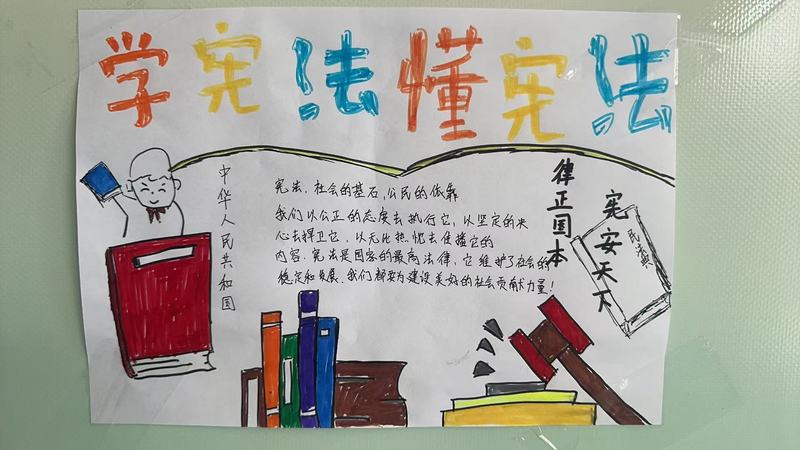 学宪法懂宪法
中华人民共和国
宪法,社会的基石,公民的依靠
我们以公正的态度去执行它,以坚定的决
心去捍卫它,以无比热忱去传播它的
内容.宪法是国家的最高法律,它维护了社会的
稳定和发展.我们都要为建设美好的社会贡献力量!
律正国本
宪安天下
民法典